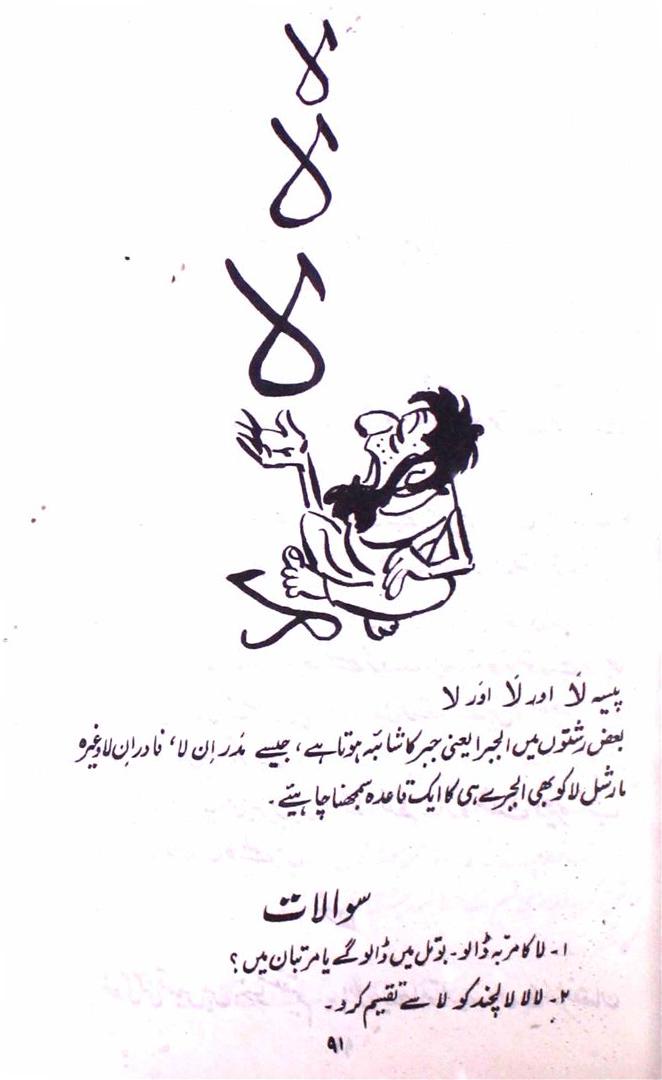 لا
لا
لا
لا
پیسہ لَا اور لَا اور لا
بعض رشتوں میں الجبرا یعنی جبر کا شائبہ ہوتا ہے، جیسے مَدر اِن لا، فادر اِن لا وغیرہ
مارشل لا کو بھی الجبرے ہی کا ایک قاعدہ سمجھنا چاہیئے۔
سوالات
۱- لا کا مربہ ڈالو۔ بوتل میں ڈالو گے یا مرتبان میں؟
۲- لالا لالچند کو لا سے تقسیم کرو۔
۹۱